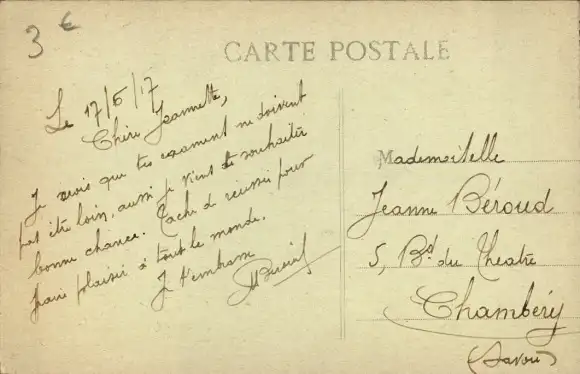 3 €
CARTE POSTALE
Le 17/6/17
Chère Jeannette,
Je crois que tes examens ne doivent
pas être loin, aussi je viens te souhaiter
bonne chance. Tâche de réussir pour
faire plaisir à tout le monde.
Je t'embrasse
Mademoiselle
Jeanne Béroud
5, Bd du Théatre
Chambéry
(Savoie)